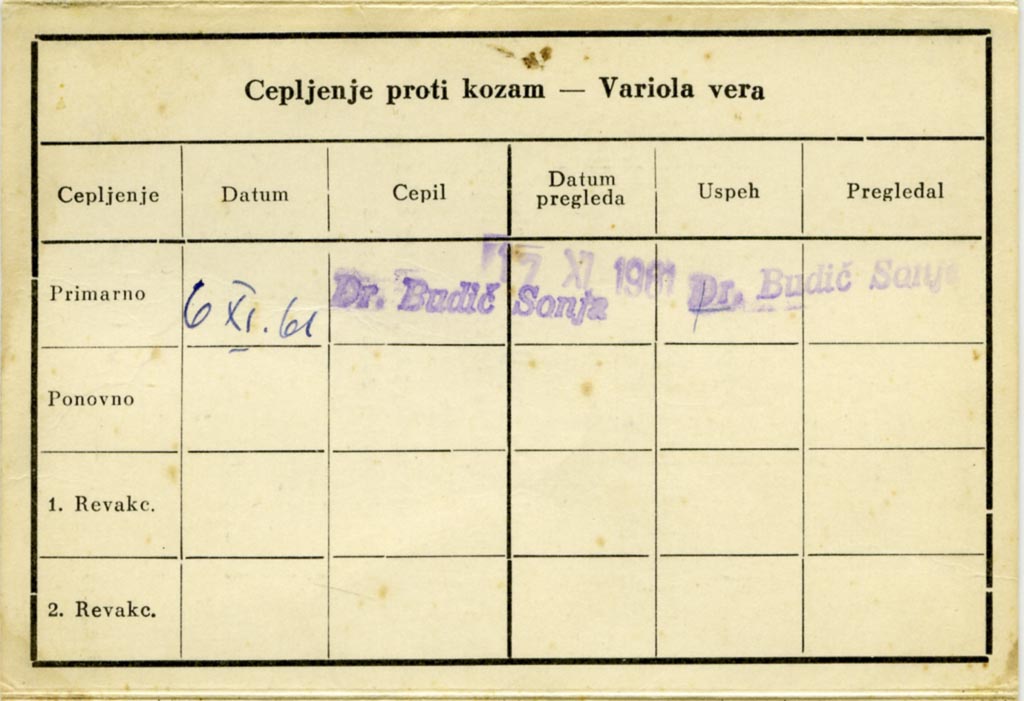 Cepljenje proti kozam — Variola vera
Cepljenje Datum Cepil Datum pregleda Uspeh Pregledal
Primarno 6 XI. 61 Dr. Budić Sonja 17 XI 1961 Dr. Budić Sonja
Ponovno
1. Revakc.
2. Revakc.